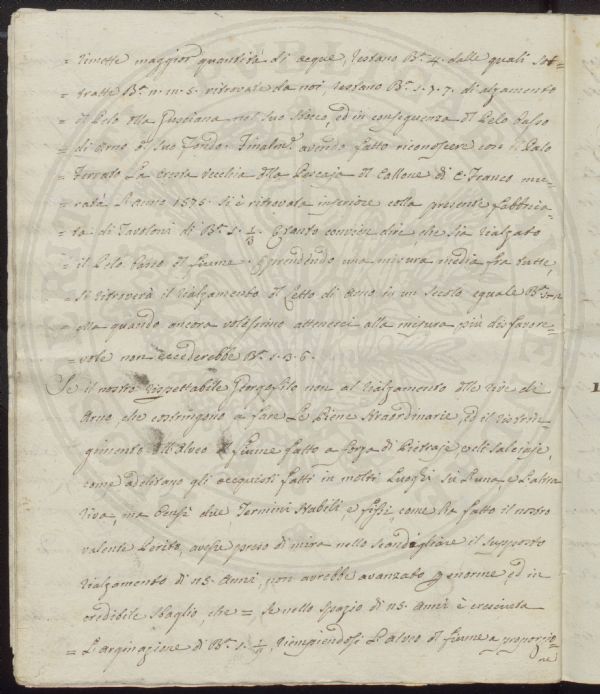 = rimette maggior quantità di acque, restano Bª. 4. dalle quali sot=
= tratte Bª. n. m. 5. ritrovate da noi, restano Bª. 1. 7. 7. di alzamento
= del Pelo della Gusciana nel suo sbocco, ed in conseguenza del Pelo basso
= di Arno e suo Fondo. Finalmᵉ. avendo fatto riconoscere con il Palo
= Ferrato la Cresta vecchia della Pescaja del Callone di C. Franco mu=
= rata l'Anno 1575. si è ritrovata inferiore colla presente fabbrica=
= ta di Tavoloni di Bª. 1. 1/3. E tanto convien dire, che sia rialzato
= il Pelo basso del fiume. E prendendo una misura media fra tutte,
= si ritroverà il rialzamento del Letto di Arno in un secolo eguale Bª.
= Ma quando ancora volessimo attenerci alla misura più disfavore=
= vole non eccederebbe Bª. 1. 3. 6.
Se il nostro rispettabile Georgofilo non al rialzamento delle rive di
Arno, che costringono a fare le Piene straordinarie, ed il ristrin=
gimento dell'Alveo del fiume fatto a forza di Pietraje, e di Salciaje,
come additano gli acquisti fatti in molti Luoghi su l'una, e l'altra
riva, ma bensì due Termini stabili, e fissi come ha fatto il nostro
valente Perito, avesse preso di mira nello scandigliare il supposto
rialzamento di 115. Anni, non avrebbe avanzato enorme, ed in
credibile sbaglio, che =, se nello spazio di 115. Anni è cresciuta
= L'arginazione di Bª. 1. riempiendosi l'alveo del fiume a proporzio=
ne